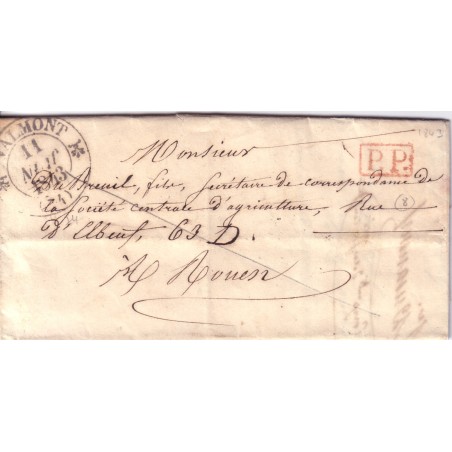 VALMONT
11
1843
(74)
1843
P.P.
Monsieur
Du Breuil, fils, Secrétaire de correspondance de
la Société centrale d'agriculture, Rue (8)
d'Elbeuf, 63 D.
à Rouen